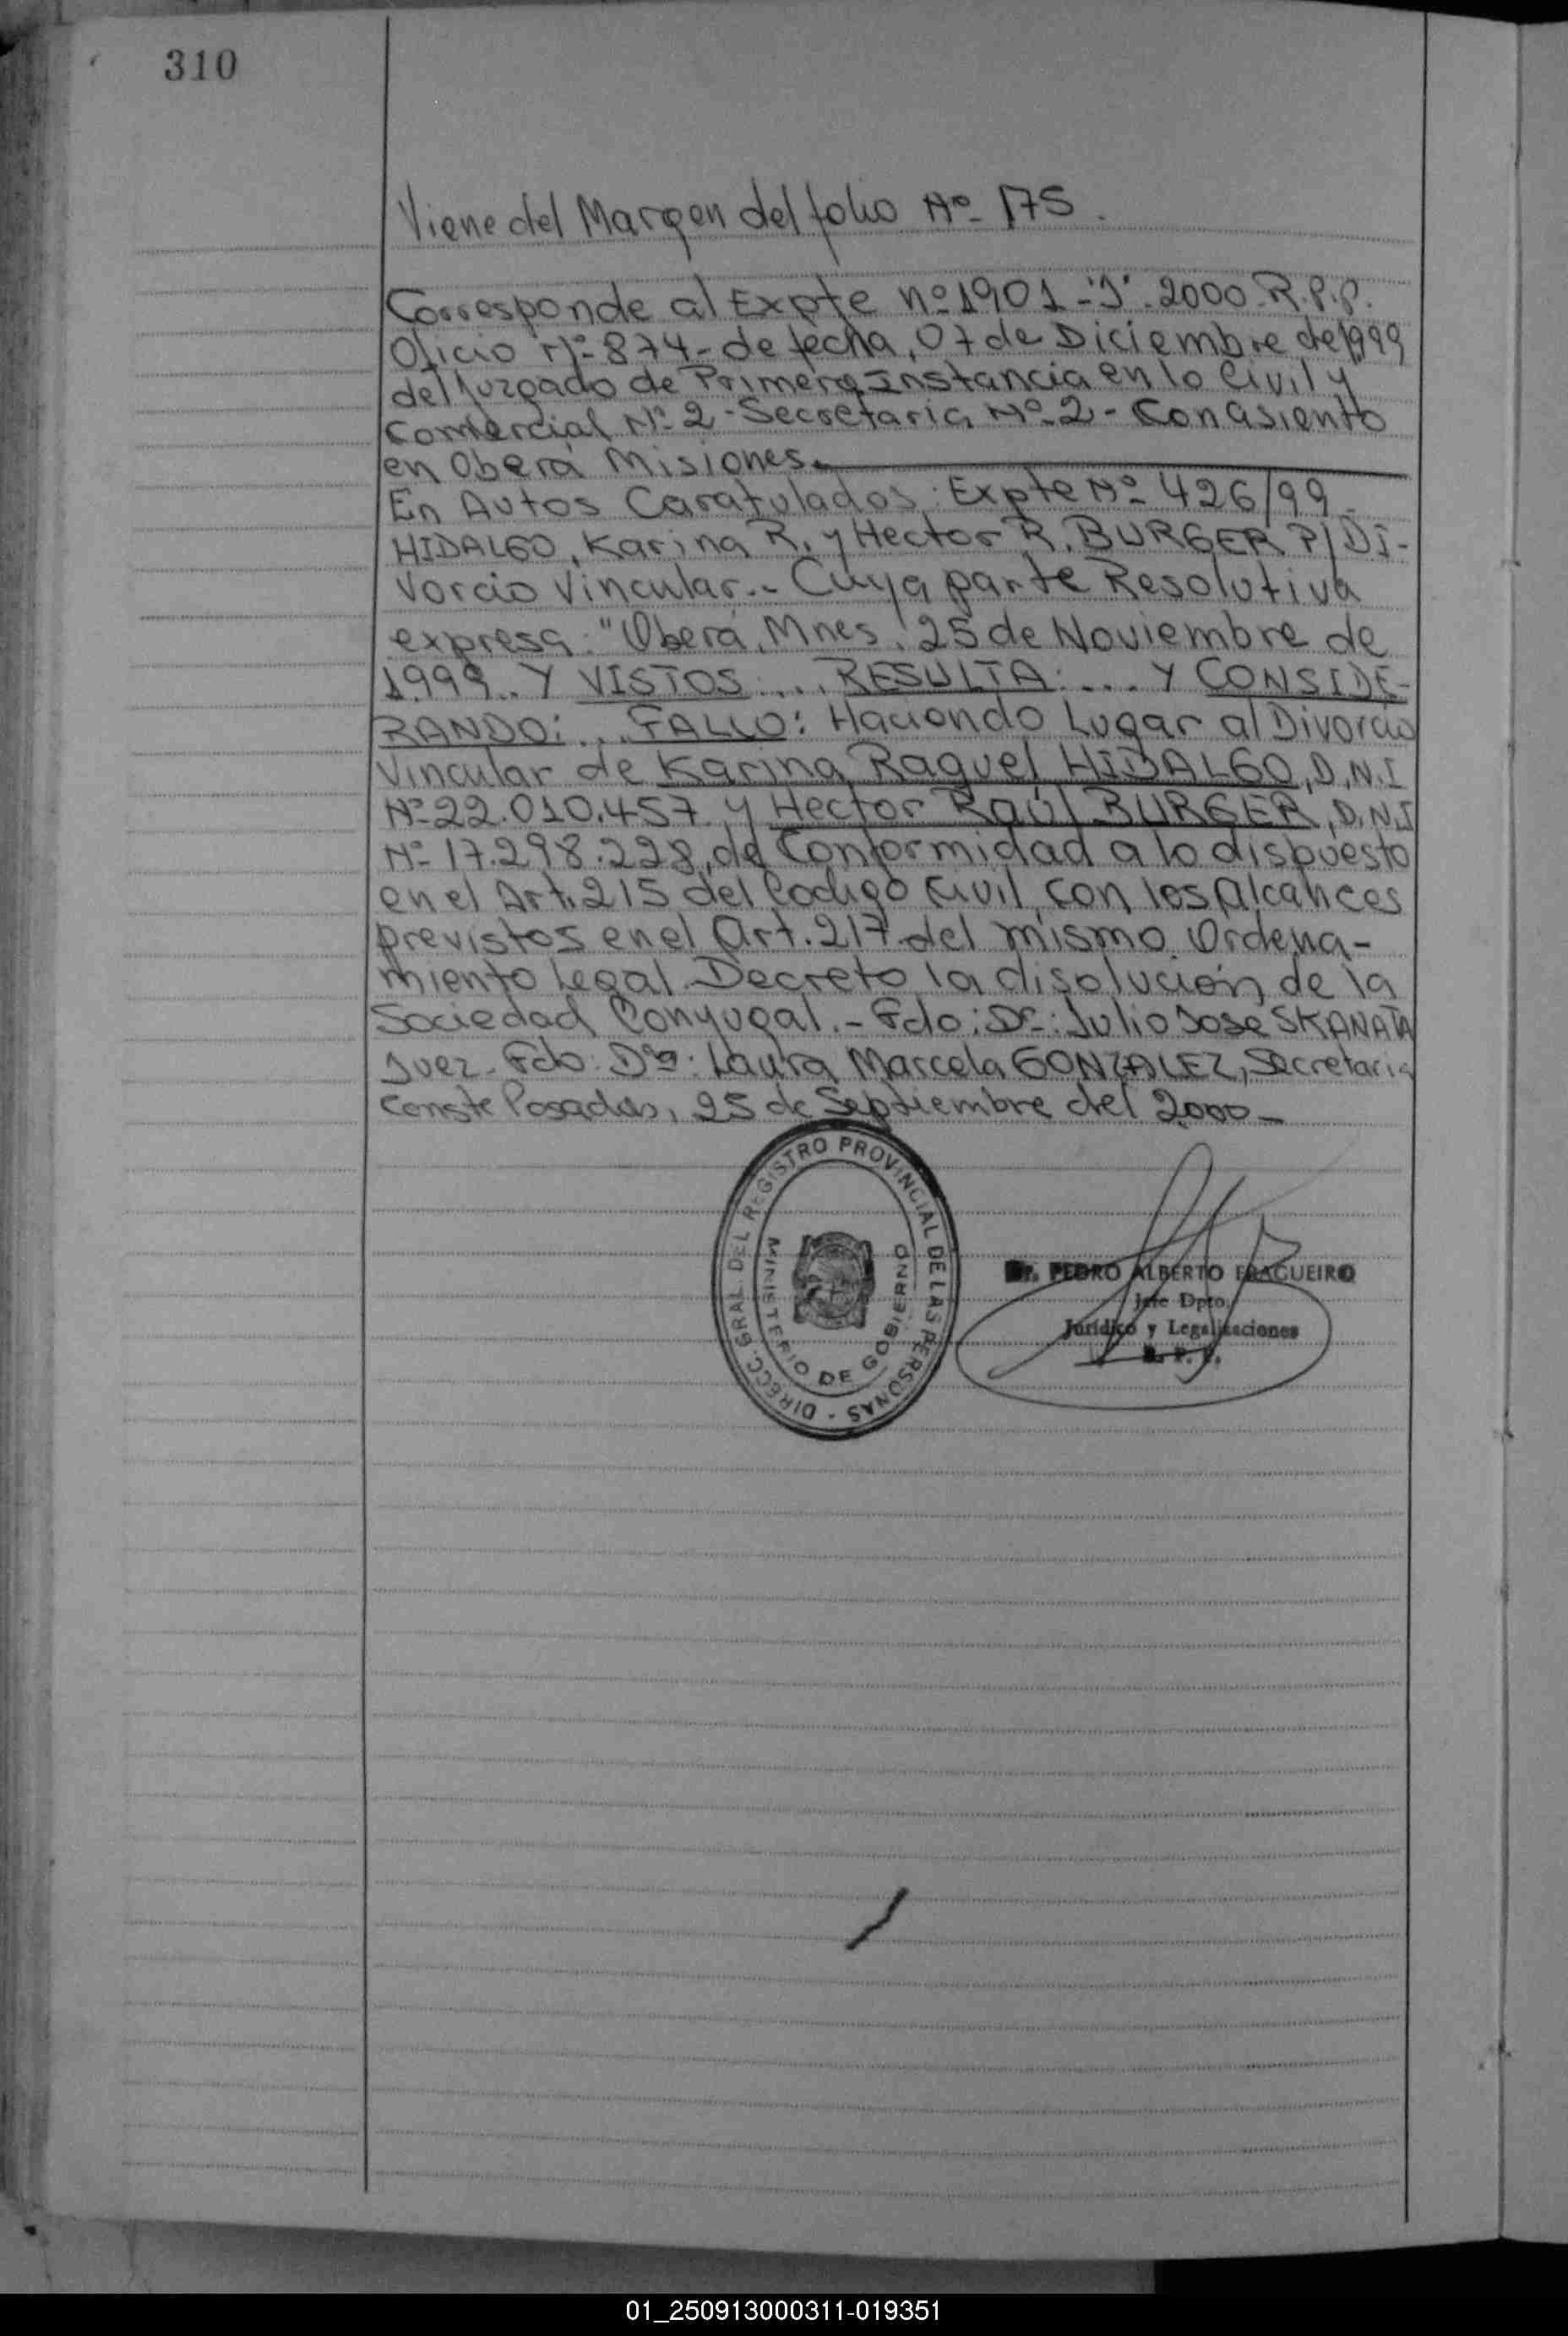 310
Viene del Margen del folio Nº 175.
Corresponde al Expte nº 1901-"J". 2000-R.P.P.
Oficio Nº 874- de fecha, 07 de Diciembre de 1999
del Juzgado de Primera Instancia en lo Civil y
Comercial Nº 2 - Secretaria Nº 2 - Con asiento
en Oberá Misiones.
En Autos Caratulados: Expte Nº 426/99.
HIDALGO, Karina R. y Hector R. BURGER P/DI-
Vorcio Vincular.- Cuya parte Resolutiva
expresa: "Oberá, Mnes, 25 de Noviembre de
1999.. Y VISTOS:... RESULTA:.... Y CONSIDE-
RANDO:... FALLO: Haciendo Lugar al Divorcio
Vincular de Karina Raquel HIDALGO, D.N.I
Nº 22.010.457. y Hector Raúl BURGER, D.N.I
Nº 17.298.228, de Conformidad a lo dispuesto
en el Art. 215 del Codigo Civil, con los Alcances
previstos en el Art. 217 del mismo Ordena-
miento Legal. Decreto la disolución de la
Sociedad Conyugal.- Fdo: Dr: Julio Jose SKANATA
Juez- Fdo: Dra: Laura Marcela GONZALEZ, Secretaria
Conste Posadas, 25 de Septiembre del 2000-
DIRECC. GRAL. DEL REGISTRO PROVINCIAL DE LAS PERSONAS -
MINISTERIO DE GOBIERNO
Dr. PEDRO ALBERTO FRAGUEIRO
Jefe Dpto.
Jurídico y Legalizaciones
R. P. P.
01_250913000311-019351